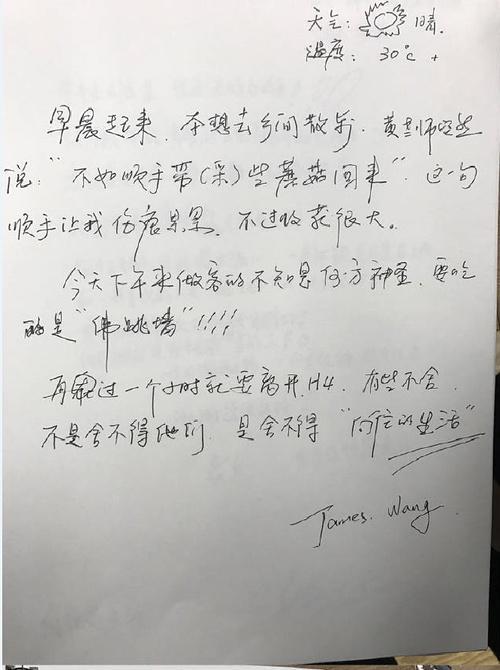 天气: 晴.
温度: 30°C +
早晨起来, 本想去乡间散步, 黄老师突然
说:"不如顺手带(采)些蘑菇回来". 这一句
顺手让我伤痕累累, 不过收获很大。
今天下午来做客的不知是何方神圣, 要吃
的是"佛跳墙"!!!!
再过一个小时就要离开H4, 有些不舍.
不是舍不得他们, 是舍不得 "向往的生活"
James. Wang.